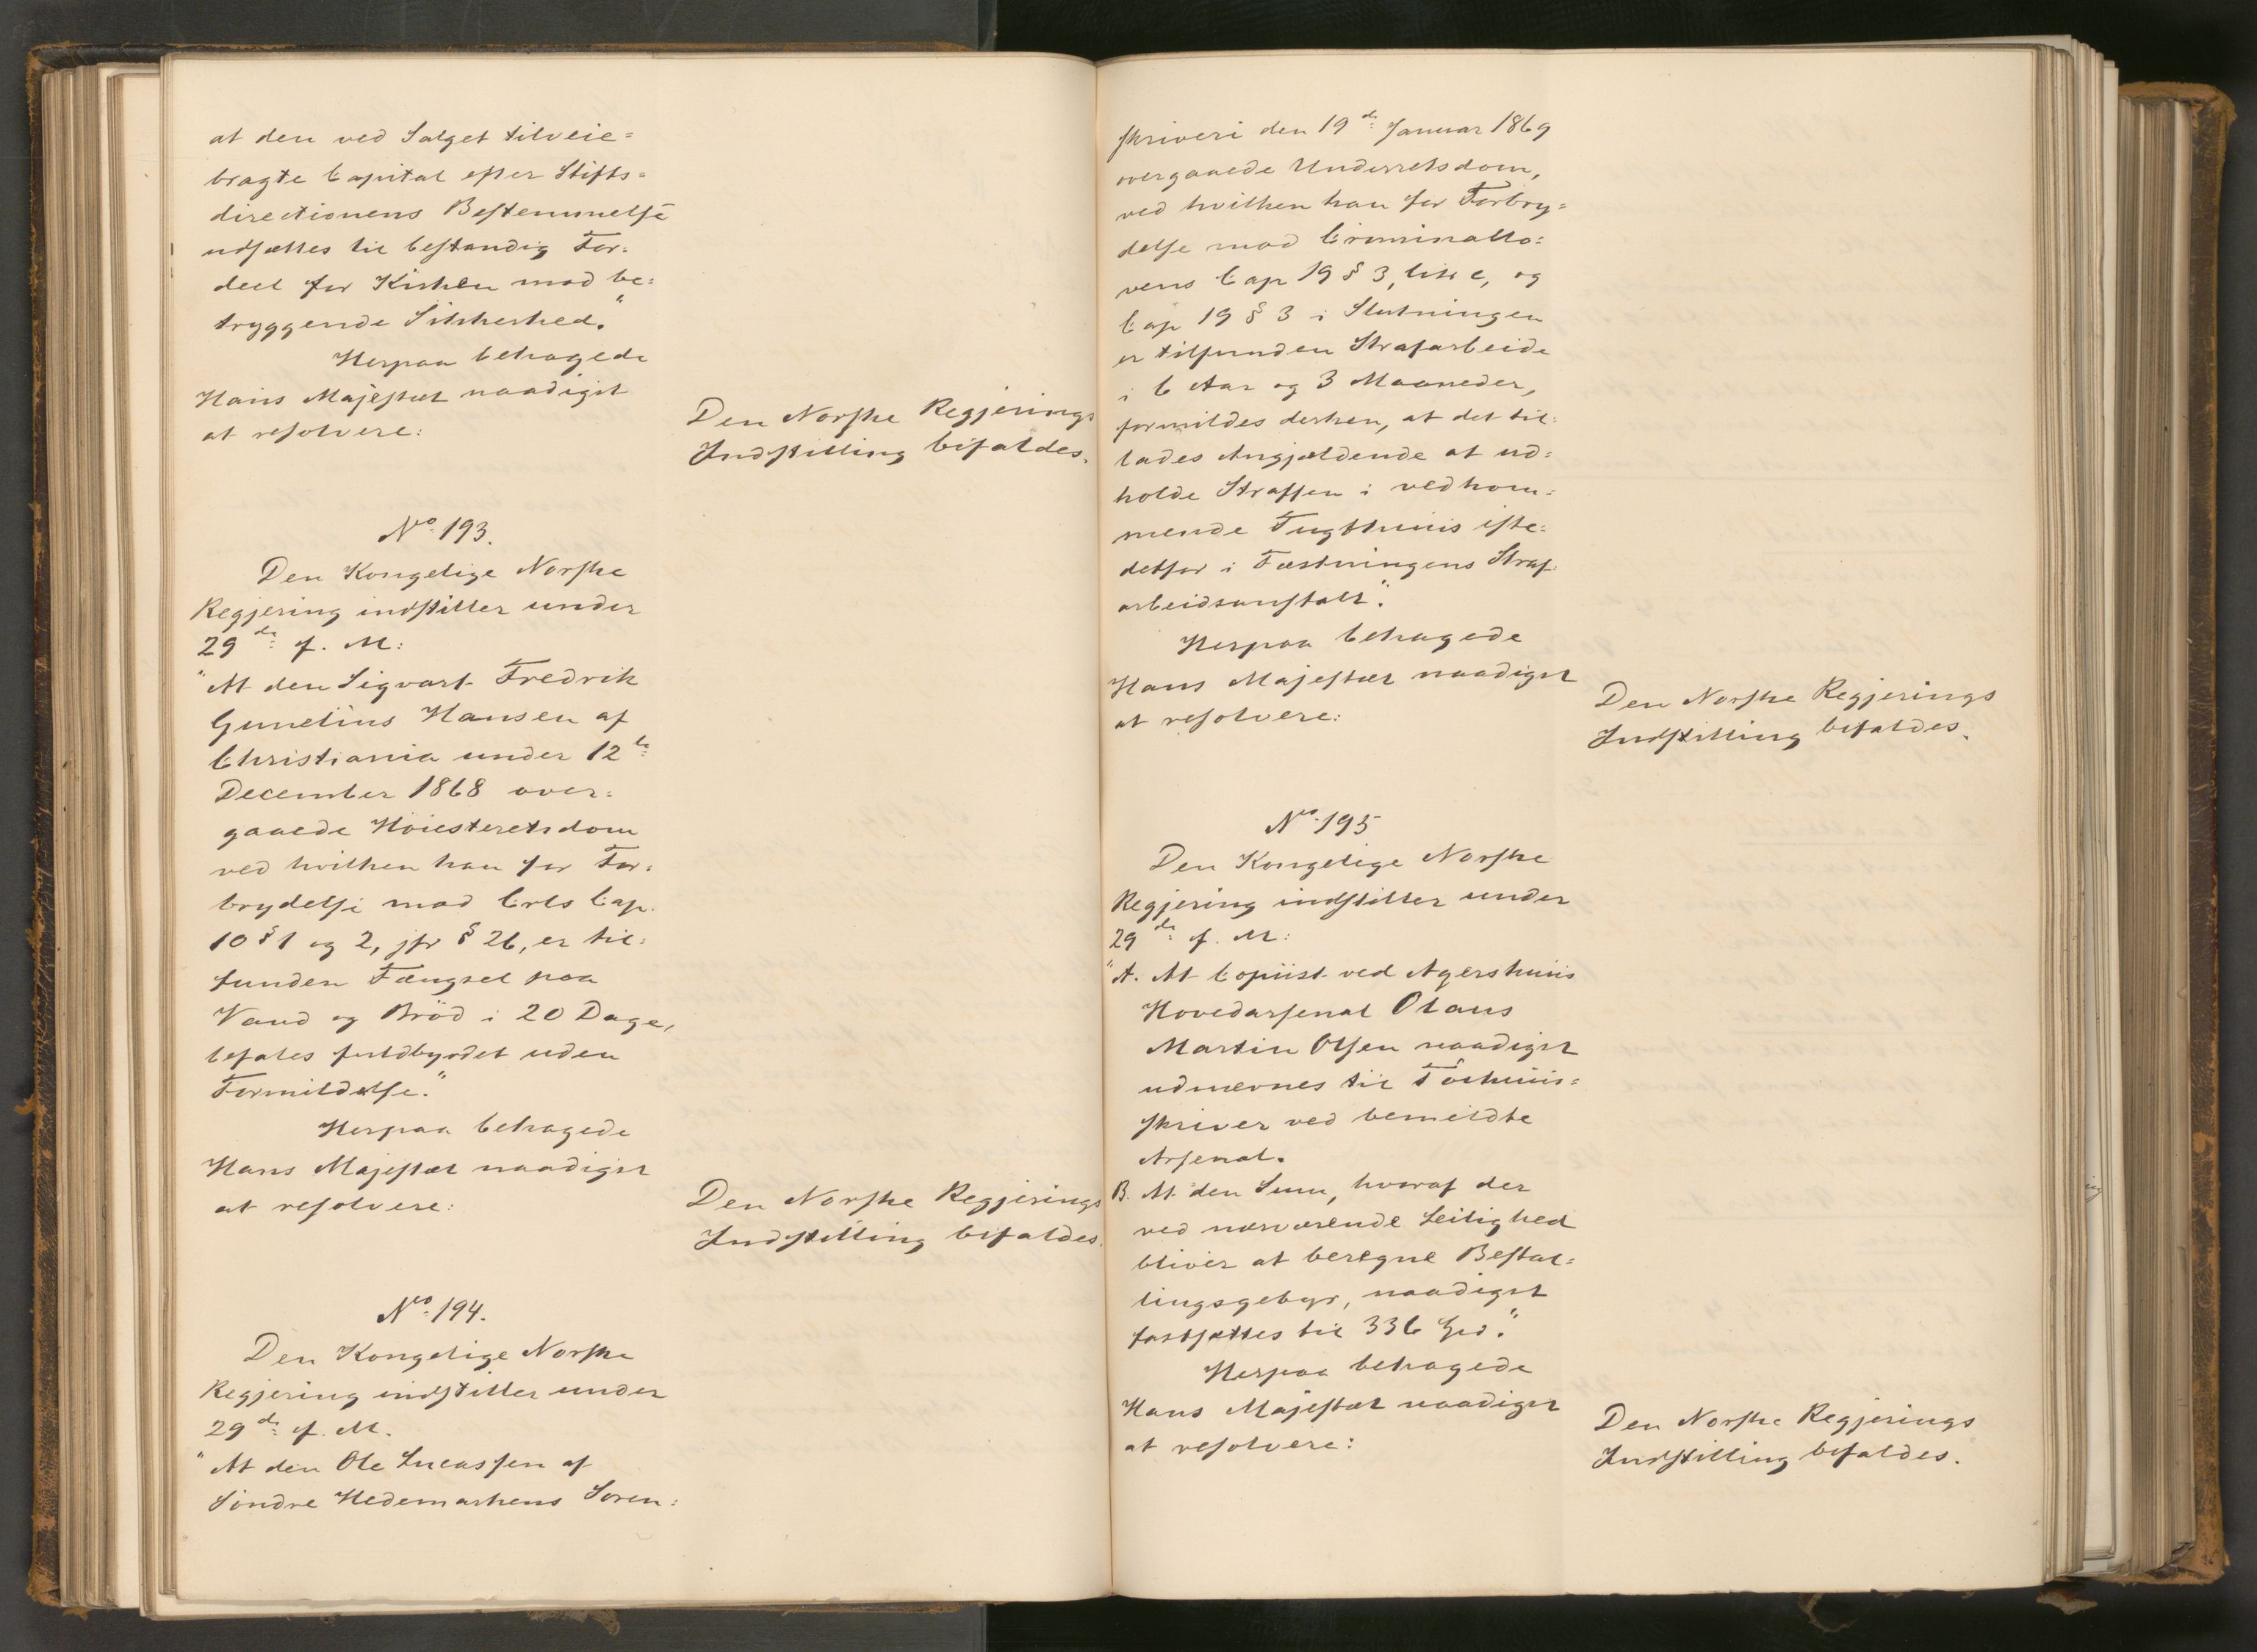 at den ved Salget tilveie=
bragte Capital efter Stifts=
directionens Bestemmelse
udsættes til bestandig For=
deel for Kirken mod be=
tryggende Sikkerhed."
Herpaa behagede
Hans Majestæt naadigst
at resolvere:
Den Norske Regjerings
Indstilling bifaldes.
No. 193.
Den Kongelige Norske
Regjering indstiller under
29de f. M:
"At den Sigvart Fredrik
Gunelius Hansen af
Christiania under 12te
December 1868 over=
gaaede Höiesteretsdom
ved hvilken han for For=
brydelse mod Crls Cap.
10 § 1 og 2, jfr § 26, er til=
funden Fængsel paa
Vand og Bröd i 20 Dage,
befales fuldbyrdet uden
Formildelse."
Herpaa behagede
Hans Majestæt naadigst
at resolvere:
Den Norske Regjerings
Indstilling bifaldes.
No. 194.
Den Kongelige Norske
Regjering indstiller under
29de f. M.
"At den Ole Lucassen af
Söndre Hedemarkens Soren=
skriveri den 19de Januar 1869
overgaaede Underretsdom,
ved hvilken han for Forbry=
delse mod Criminallo=
vens Cap 19 § 3, litr c, og
Cap 19 § 3 i Slutningen
er tilfunden Strafarbeide
i 6 Aar og 3 Maaneder,
formildes derhen, at det til=
lades Angjældende at ud=
holde Straffen i vedkom=
mende Tugthuus iste=
detfor i Fæstningens Straf
arbeidsanstalt".
Herpaa behagede
Hans Majestæt naadigst
at resolvere:
Den Norske Regjerings
Indstilling bifaldes.
No. 195
Den Kongelige Norske
Regjering indstiller under
29de f. M:
"A. At Copiist ved Agershuus
Hovedarsenal Olaus
Martin Olsen naadigst
udnævnes til Töihuus=
skriver ved bemeldte
Arsenal.
B. At den Sum, hvoraf der
ved nærværende Leilighed
bliver at beregne Bestal=
lingsgebyr, naadigst
fastsættes til 336 Spd."
Herpaa behagede
Hans Majestæt naadigst
at resolvere:
Den Norske Regjerings
Indstilling bifaldes.